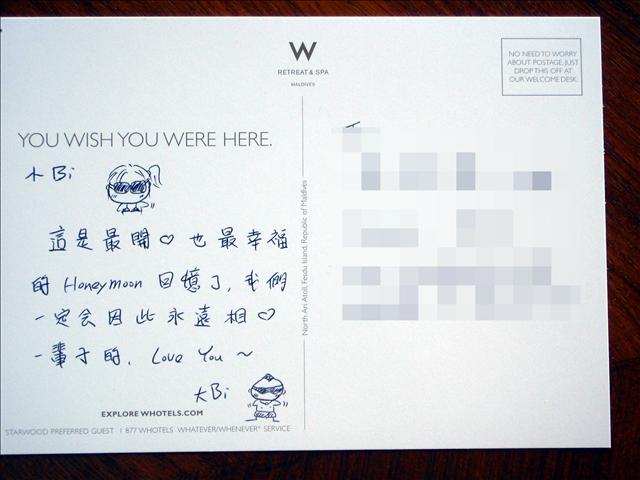 W
RETREAT & SPA
MALDIVES
NO NEED TO WORRY
ABOUT POSTAGE, JUST
DROP THIS OFF AT
OUR WELCOME DESK.
YOU WISH YOU WERE HERE.
小 Bi
這是最開♡也最幸福
的 Honeymoon 回憶了，我們
一定会因此永遠相♡
一輩子的. Love You ～
大Bi
EXPLORE WHOTELS.COM
STARWOOD PREFERRED GUEST 1 877 WHOTELS WHATEVER/WHENEVER® SERVICE
North Ari Atoll, Fesdu Island, Republic of Maldives